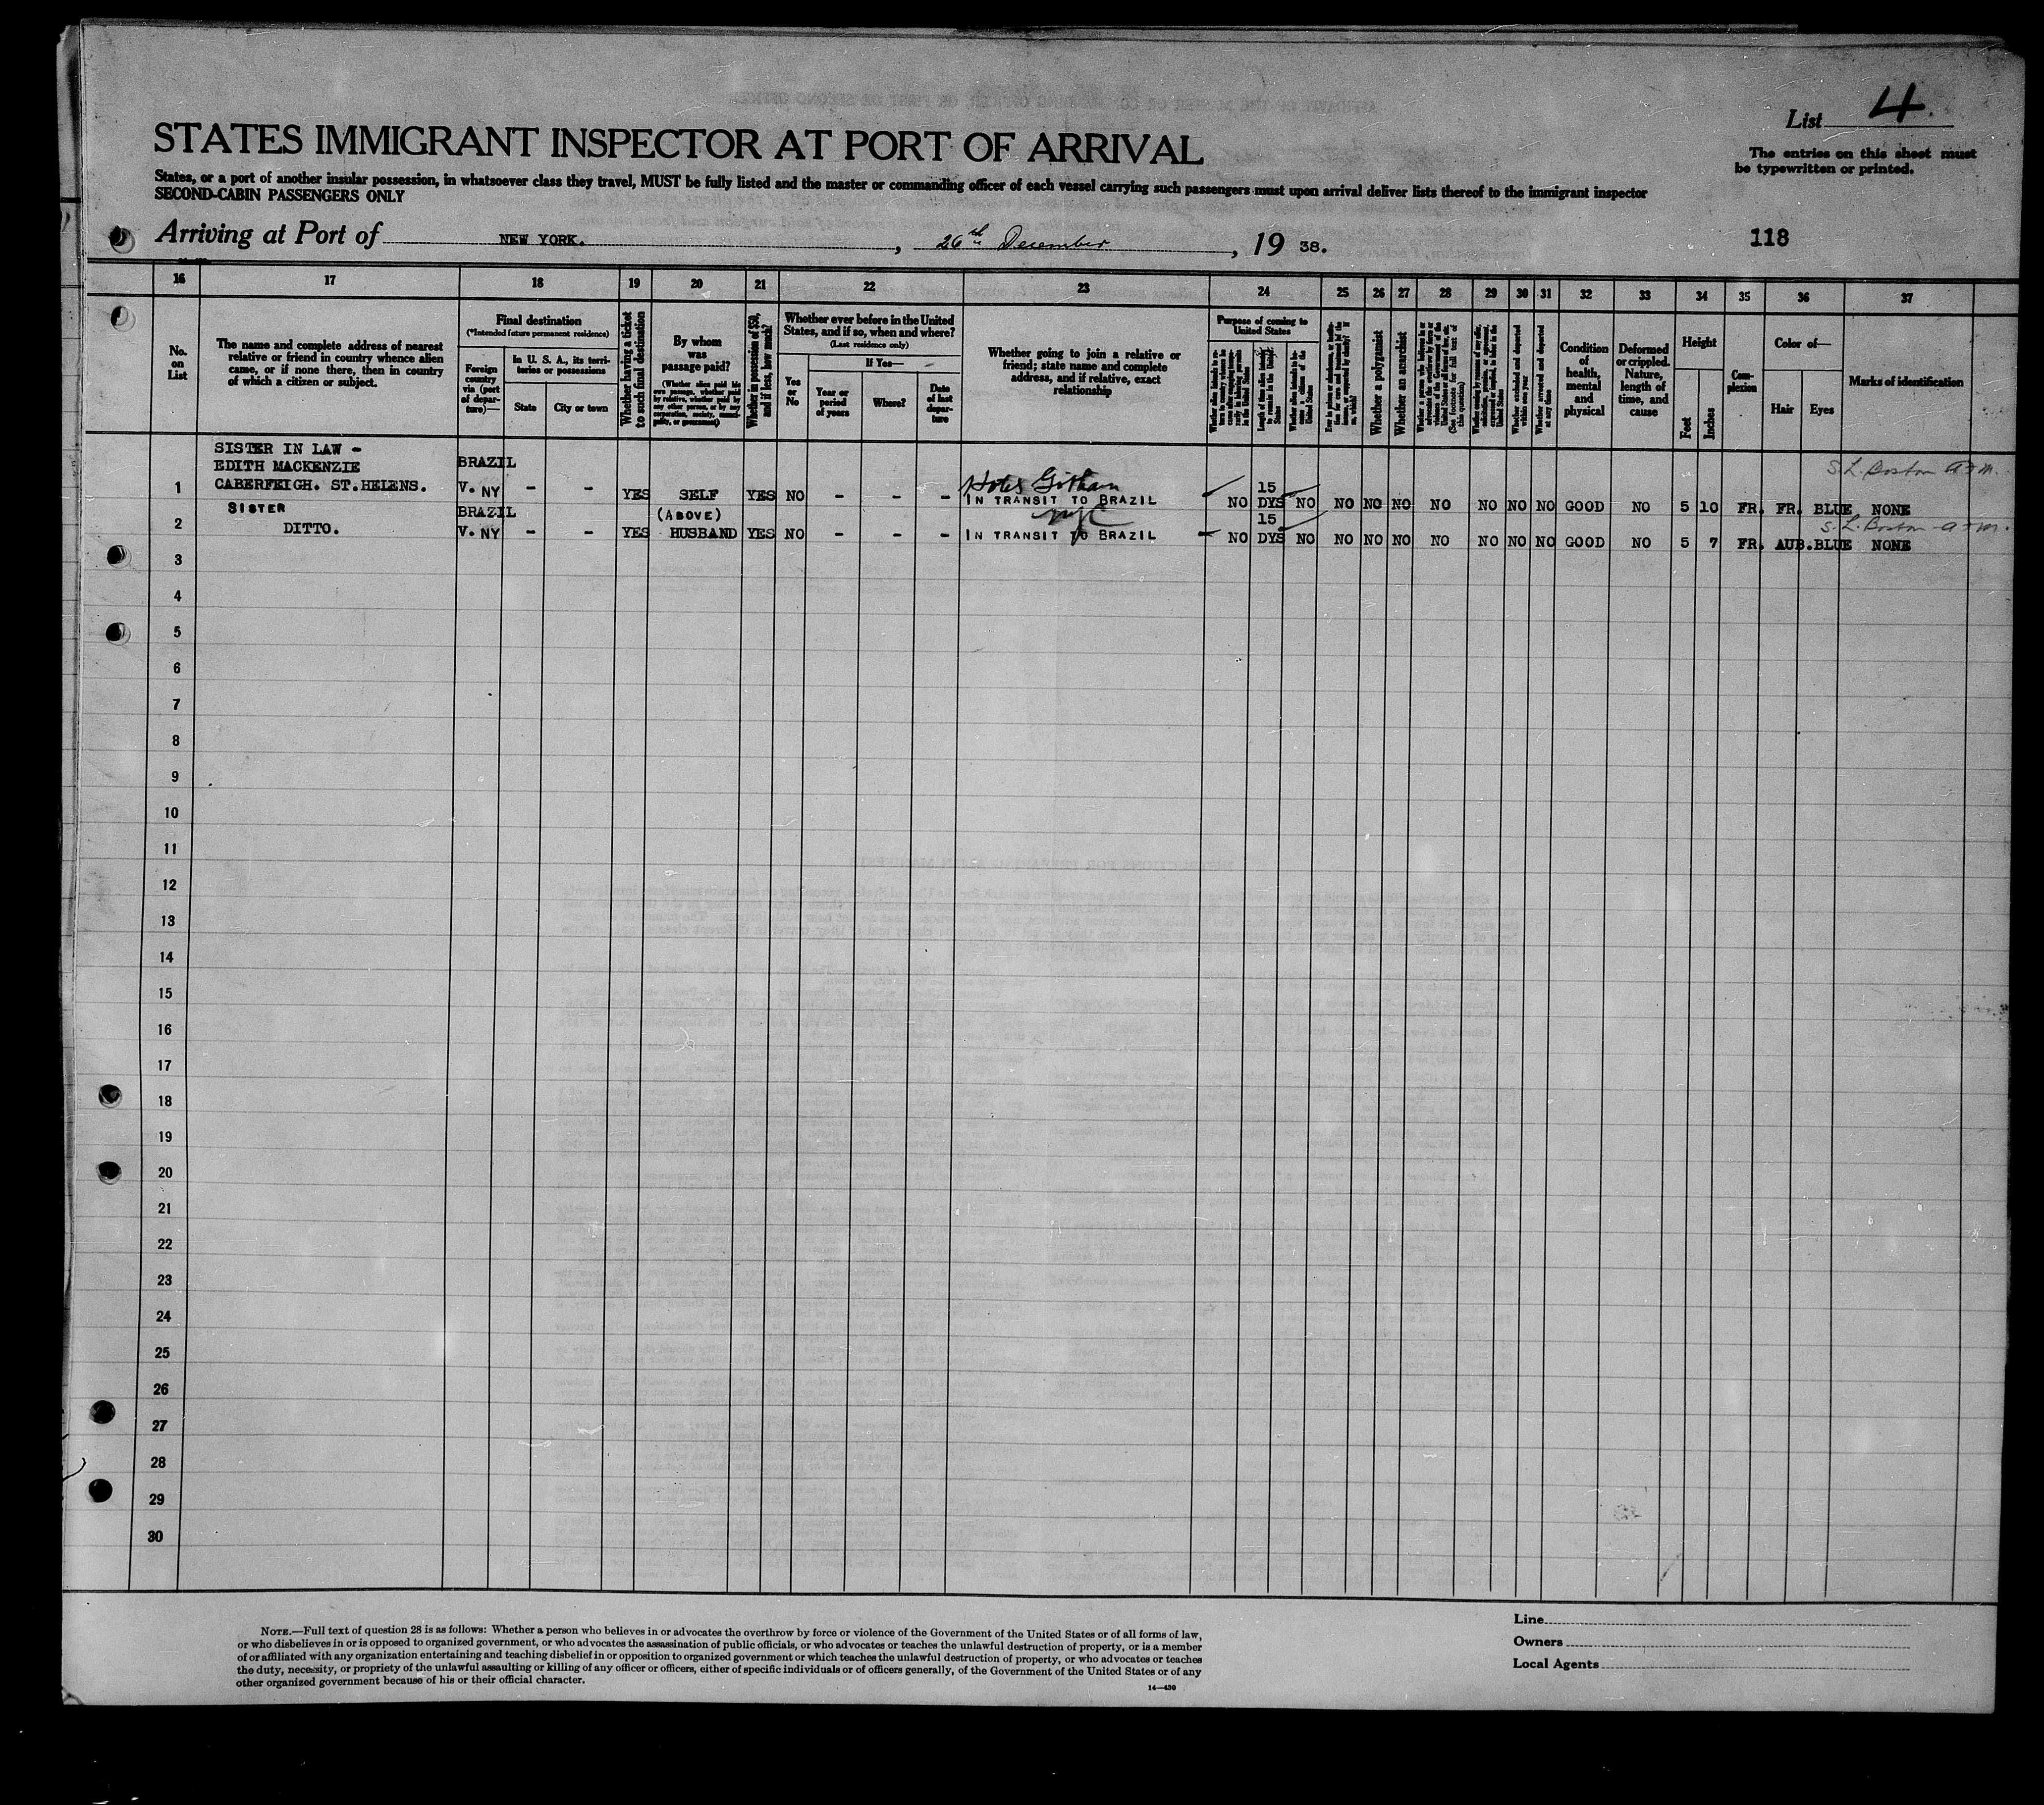 List 4.
STATES IMMIGRANT INSPECTOR AT PORT OF ARRIVAL
The entries on this sheet must
be typewritten or printed.
States, or a port of another insular possession, in whatsoever class they travel, MUST be fully listed and the master or commanding officer of each vessel carrying such passengers must upon arrival deliver lists thereof to the immigrant inspector
SECOND-CABIN PASSENGERS ONLY
Arriving at Port of NEW YORK. , 26th December , 19 38.
118
16 17 18 19 20 21 22 23 24 25 26 27 28 29 30 31 32 33 34 35 36 37
No.
on
List
The name and complete address of nearest
relative or friend in country whence alien
came, or if none there, then in country
of which a citizen or subject.
Final destination
(*Intended future permanent residence)
Foreign
country
via (port
of depar-
ture)—
In U. S. A., its terri-
tories or possessions
State
City or town
Whether having a ticket
to such final destination
By whom
was
passage paid?
(Whether alien paid his
own passage, whether paid
by relative, whether paid by
any other person, or by any
corporation, society, munici-
pality, or government)
Whether in possession of $50,
and if less, how much?
Whether ever before in the United
States, and if so, when and where?
(Last residence only)
Yes
or
No
If Yes—
Year or
period
of years
Where?
Date
of last
depar-
ture
Whether going to join a relative or
friend; state name and complete
address, and if relative, exact
relationship
Purpose of coming to
United States
Length of time alien intends
to remain in the United
States
Whether alien intends to be-
come a citizen of the
United States
Whether a polygamist
Whether an anarchist
(See footnote for full text of
this question)
Whether excluded and deported
within one year
Whether arrested and deported
at any time
Condition
of
health,
mental
and
physical
Deformed
or crippled.
Nature,
length of
time, and
cause
Height
Feet
Inches
Com-
plexion
Color of—
Hair
Eyes
Marks of identification
SISTER IN LAW –
EDITH MACKENZIE
CABERFEIGH. ST.HELENS.
1 BRAZIL V. NY – – YES SELF YES NO – – – Hotel Gotham NYC IN TRANSIT TO BRAZIL NO 15 DYS NO NO NO NO NO NO NO NO GOOD NO 5 10 FR. FR. BLUE NONE
S. L. Boston
SISTER
2 DITTO. BRAZIL V. NY – – YES (ABOVE) HUSBAND YES NO – – – IN TRANSIT TO BRAZIL NO 15 DYS NO NO NO NO NO NO NO NO GOOD NO 5 7 FR. AUB. BLUE NONE
S. L. Boston
3
4
5
6
7
8
9
10
11
12
13
14
15
16
17
18
19
20
21
22
23
24
25
26
27
28
29
30
NOTE.—Full text of question 28 is as follows: Whether a person who believes in or advocates the overthrow by force or violence of the Government of the United States or of all forms of law,
or who disbelieves in or is opposed to organized government, or who advocates the assassination of public officials, or who advocates or teaches the unlawful destruction of property, or is a member
of or affiliated with any organization entertaining and teaching disbelief in or opposition to organized government or which teaches the unlawful destruction of property, or who advocates or teaches
the duty, necessity, or propriety of the unlawful assaulting or killing of any officer or officers, either of specific individuals or of officers generally, of the Government of the United States or of any
other organized government because of his or their official character.
14—430
Line
Owners
Local Agents